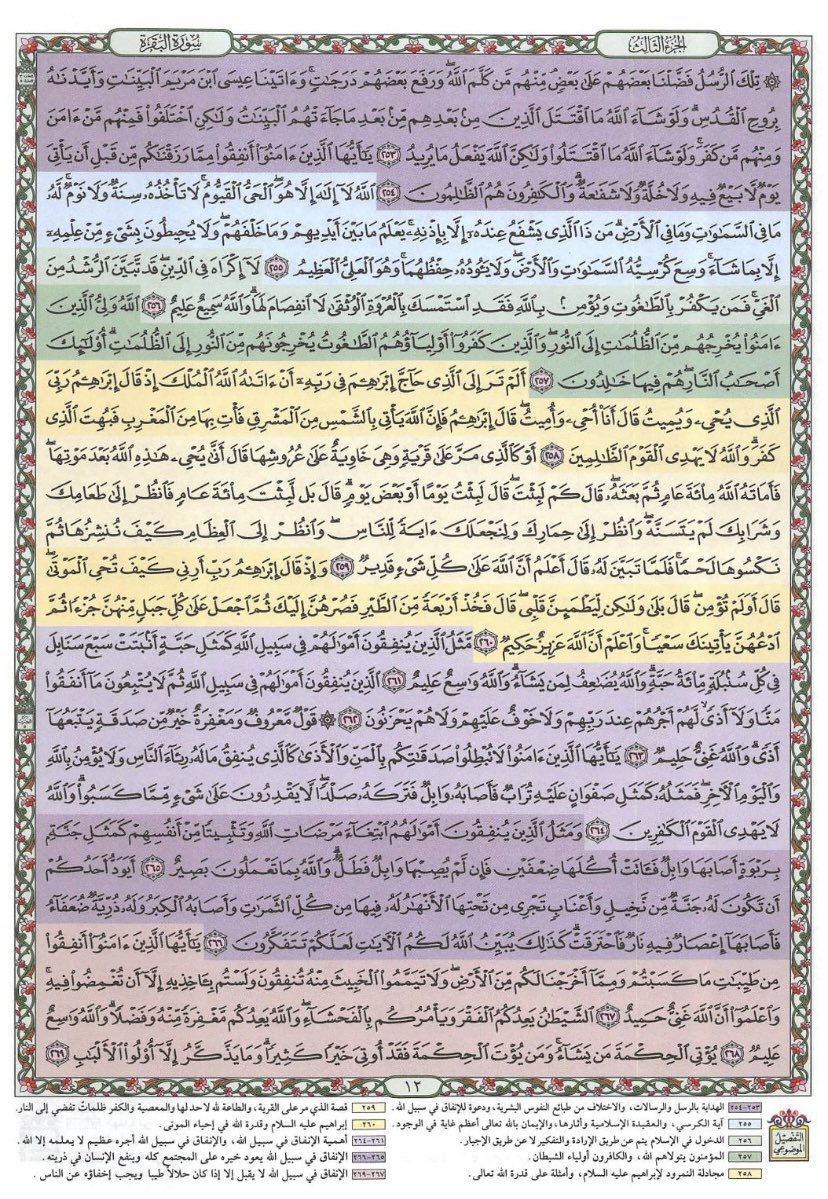 الجزء الثالث
سورة البقرة
۞ تِلْكَ ٱلرُّسُلُ فَضَّلْنَا بَعْضَهُمْ عَلَىٰ بَعْضٍۘ مِّنْهُم مَّن كَلَّمَ ٱللَّهُۖ وَرَفَعَ بَعْضَهُمْ دَرَجَٰتٍۚ وَءَاتَيْنَا عِيسَى ٱبْنَ مَرْيَمَ ٱلْبَيِّنَٰتِ وَأَيَّدْنَٰهُ
بِرُوحِ ٱلْقُدُسِۗ وَلَوْ شَآءَ ٱللَّهُ مَا ٱقْتَتَلَ ٱلَّذِينَ مِنۢ بَعْدِهِم مِّنۢ بَعْدِ مَا جَآءَتْهُمُ ٱلْبَيِّنَٰتُ وَلَٰكِنِ ٱخْتَلَفُوا۟ فَمِنْهُم مَّنْ ءَامَنَ
وَمِنْهُم مَّن كَفَرَۚ وَلَوْ شَآءَ ٱللَّهُ مَا ٱقْتَتَلُوا۟ وَلَٰكِنَّ ٱللَّهَ يَفْعَلُ مَا يُرِيدُ ٢٥٣ يَٰٓأَيُّهَا ٱلَّذِينَ ءَامَنُوٓا۟ أَنفِقُوا۟ مِمَّا رَزَقْنَٰكُم مِّن قَبْلِ أَن يَأْتِىَ
يَوْمٌ لَّا بَيْعٌ فِيهِ وَلَا خُلَّةٌ وَلَا شَفَٰعَةٌۗ وَٱلْكَٰفِرُونَ هُمُ ٱلظَّٰلِمُونَ ٢٥٤ ٱللَّهُ لَآ إِلَٰهَ إِلَّا هُوَ ٱلْحَىُّ ٱلْقَيُّومُۚ لَا تَأْخُذُهُۥ سِنَةٌ وَلَا نَوْمٌۚ لَّهُۥ
مَا فِى ٱلسَّمَٰوَٰتِ وَمَا فِى ٱلْأَرْضِۗ مَن ذَا ٱلَّذِى يَشْفَعُ عِندَهُۥٓ إِلَّا بِإِذْنِهِۦۚ يَعْلَمُ مَا بَيْنَ أَيْدِيهِمْ وَمَا خَلْفَهُمْۖ وَلَا يُحِيطُونَ بِشَىْءٍ مِّنْ عِلْمِهِۦٓ
إِلَّا بِمَا شَآءَۚ وَسِعَ كُرْسِيُّهُ ٱلسَّمَٰوَٰتِ وَٱلْأَرْضَۖ وَلَا يَـُٔودُهُۥ حِفْظُهُمَاۚ وَهُوَ ٱلْعَلِىُّ ٱلْعَظِيمُ ٢٥٥ لَآ إِكْرَاهَ فِى ٱلدِّينِۖ قَد تَّبَيَّنَ ٱلرُّشْدُ مِنَ
ٱلْغَىِّۚ فَمَن يَكْفُرْ بِٱلطَّٰغُوتِ وَيُؤْمِنۢ بِٱللَّهِ فَقَدِ ٱسْتَمْسَكَ بِٱلْعُرْوَةِ ٱلْوُثْقَىٰ لَا ٱنفِصَامَ لَهَاۗ وَٱللَّهُ سَمِيعٌ عَلِيمٌ ٢٥٦ ٱللَّهُ وَلِىُّ ٱلَّذِينَ
ءَامَنُوا۟ يُخْرِجُهُم مِّنَ ٱلظُّلُمَٰتِ إِلَى ٱلنُّورِۖ وَٱلَّذِينَ كَفَرُوٓا۟ أَوْلِيَآؤُهُمُ ٱلطَّٰغُوتُ يُخْرِجُونَهُم مِّنَ ٱلنُّورِ إِلَى ٱلظُّلُمَٰتِۗ أُو۟لَٰٓئِكَ
أَصْحَٰبُ ٱلنَّارِۖ هُمْ فِيهَا خَٰلِدُونَ ٢٥٧ أَلَمْ تَرَ إِلَى ٱلَّذِى حَآجَّ إِبْرَٰهِۦمَ فِى رَبِّهِۦٓ أَنْ ءَاتَىٰهُ ٱللَّهُ ٱلْمُلْكَ إِذْ قَالَ إِبْرَٰهِۦمُ رَبِّىَ
ٱلَّذِى يُحْىِۦ وَيُمِيتُ قَالَ أَنَا۠ أُحْىِۦ وَأُمِيتُۖ قَالَ إِبْرَٰهِۦمُ فَإِنَّ ٱللَّهَ يَأْتِى بِٱلشَّمْسِ مِنَ ٱلْمَشْرِقِ فَأْتِ بِهَا مِنَ ٱلْمَغْرِبِ فَبُهِتَ ٱلَّذِى
كَفَرَۗ وَٱللَّهُ لَا يَهْدِى ٱلْقَوْمَ ٱلظَّٰلِمِينَ ٢٥٨ أَوْ كَٱلَّذِى مَرَّ عَلَىٰ قَرْيَةٍ وَهِىَ خَاوِيَةٌ عَلَىٰ عُرُوشِهَا قَالَ أَنَّىٰ يُحْىِۦ هَٰذِهِ ٱللَّهُ بَعْدَ مَوْتِهَاۖ
فَأَمَاتَهُ ٱللَّهُ مِا۟ئَةَ عَامٍ ثُمَّ بَعَثَهُۥۖ قَالَ كَمْ لَبِثْتَۖ قَالَ لَبِثْتُ يَوْمًا أَوْ بَعْضَ يَوْمٍۖ قَالَ بَل لَّبِثْتَ مِا۟ئَةَ عَامٍ فَٱنظُرْ إِلَىٰ طَعَامِكَ
وَشَرَابِكَ لَمْ يَتَسَنَّهْۖ وَٱنظُرْ إِلَىٰ حِمَارِكَ وَلِنَجْعَلَكَ ءَايَةً لِّلنَّاسِۖ وَٱنظُرْ إِلَى ٱلْعِظَامِ كَيْفَ نُنشِزُهَا ثُمَّ
نَكْسُوهَا لَحْمًاۚ فَلَمَّا تَبَيَّنَ لَهُۥ قَالَ أَعْلَمُ أَنَّ ٱللَّهَ عَلَىٰ كُلِّ شَىْءٍ قَدِيرٌ ٢٥٩ وَإِذْ قَالَ إِبْرَٰهِۦمُ رَبِّ أَرِنِى كَيْفَ تُحْىِ ٱلْمَوْتَىٰۖ
قَالَ أَوَلَمْ تُؤْمِنۖ قَالَ بَلَىٰ وَلَٰكِن لِّيَطْمَئِنَّ قَلْبِىۖ قَالَ فَخُذْ أَرْبَعَةً مِّنَ ٱلطَّيْرِ فَصُرْهُنَّ إِلَيْكَ ثُمَّ ٱجْعَلْ عَلَىٰ كُلِّ جَبَلٍ مِّنْهُنَّ جُزْءًا ثُمَّ
ٱدْعُهُنَّ يَأْتِينَكَ سَعْيًاۚ وَٱعْلَمْ أَنَّ ٱللَّهَ عَزِيزٌ حَكِيمٌ ٢٦٠ مَّثَلُ ٱلَّذِينَ يُنفِقُونَ أَمْوَٰلَهُمْ فِى سَبِيلِ ٱللَّهِ كَمَثَلِ حَبَّةٍ أَنۢبَتَتْ سَبْعَ سَنَابِلَ
فِى كُلِّ سُنۢبُلَةٍ مِّا۟ئَةُ حَبَّةٍۗ وَٱللَّهُ يُضَٰعِفُ لِمَن يَشَآءُۗ وَٱللَّهُ وَٰسِعٌ عَلِيمٌ ٢٦١ ٱلَّذِينَ يُنفِقُونَ أَمْوَٰلَهُمْ فِى سَبِيلِ ٱللَّهِ ثُمَّ لَا يُتْبِعُونَ مَآ أَنفَقُوا۟
مَنًّا وَلَآ أَذًىۙ لَّهُمْ أَجْرُهُمْ عِندَ رَبِّهِمْ وَلَا خَوْفٌ عَلَيْهِمْ وَلَا هُمْ يَحْزَنُونَ ٢٦٢ ۞ قَوْلٌ مَّعْرُوفٌ وَمَغْفِرَةٌ خَيْرٌ مِّن صَدَقَةٍ يَتْبَعُهَآ
أَذًىۗ وَٱللَّهُ غَنِىٌّ حَلِيمٌ ٢٦٣ يَٰٓأَيُّهَا ٱلَّذِينَ ءَامَنُوا۟ لَا تُبْطِلُوا۟ صَدَقَٰتِكُم بِٱلْمَنِّ وَٱلْأَذَىٰ كَٱلَّذِى يُنفِقُ مَالَهُۥ رِئَآءَ ٱلنَّاسِ وَلَا يُؤْمِنُ بِٱللَّهِ
وَٱلْيَوْمِ ٱلْءَاخِرِۖ فَمَثَلُهُۥ كَمَثَلِ صَفْوَانٍ عَلَيْهِ تُرَابٌ فَأَصَابَهُۥ وَابِلٌ فَتَرَكَهُۥ صَلْدًاۖ لَّا يَقْدِرُونَ عَلَىٰ شَىْءٍ مِّمَّا كَسَبُوا۟ۗ وَٱللَّهُ
لَا يَهْدِى ٱلْقَوْمَ ٱلْكَٰفِرِينَ ٢٦٤ وَمَثَلُ ٱلَّذِينَ يُنفِقُونَ أَمْوَٰلَهُمُ ٱبْتِغَآءَ مَرْضَاتِ ٱللَّهِ وَتَثْبِيتًا مِّنْ أَنفُسِهِمْ كَمَثَلِ جَنَّةٍۭ
بِرَبْوَةٍ أَصَابَهَا وَابِلٌ فَـَٔاتَتْ أُكُلَهَا ضِعْفَيْنِ فَإِن لَّمْ يُصِبْهَا وَابِلٌ فَطَلٌّۗ وَٱللَّهُ بِمَا تَعْمَلُونَ بَصِيرٌ ٢٦٥ أَيَوَدُّ أَحَدُكُمْ
أَن تَكُونَ لَهُۥ جَنَّةٌ مِّن نَّخِيلٍ وَأَعْنَابٍ تَجْرِى مِن تَحْتِهَا ٱلْأَنْهَٰرُ لَهُۥ فِيهَا مِن كُلِّ ٱلثَّمَرَٰتِ وَأَصَابَهُ ٱلْكِبَرُ وَلَهُۥ ذُرِّيَّةٌ ضُعَفَآءُ
فَأَصَابَهَآ إِعْصَارٌ فِيهِ نَارٌ فَٱحْتَرَقَتْۗ كَذَٰلِكَ يُبَيِّنُ ٱللَّهُ لَكُمُ ٱلْءَايَٰتِ لَعَلَّكُمْ تَتَفَكَّرُونَ ٢٦٦ يَٰٓأَيُّهَا ٱلَّذِينَ ءَامَنُوٓا۟ أَنفِقُوا۟
مِن طَيِّبَٰتِ مَا كَسَبْتُمْ وَمِمَّآ أَخْرَجْنَا لَكُم مِّنَ ٱلْأَرْضِۖ وَلَا تَيَمَّمُوا۟ ٱلْخَبِيثَ مِنْهُ تُنفِقُونَ وَلَسْتُم بِـَٔاخِذِيهِ إِلَّآ أَن تُغْمِضُوا۟ فِيهِۚ
وَٱعْلَمُوٓا۟ أَنَّ ٱللَّهَ غَنِىٌّ حَمِيدٌ ٢٦٧ ٱلشَّيْطَٰنُ يَعِدُكُمُ ٱلْفَقْرَ وَيَأْمُرُكُم بِٱلْفَحْشَآءِۖ وَٱللَّهُ يَعِدُكُم مَّغْفِرَةً مِّنْهُ وَفَضْلًاۗ وَٱللَّهُ وَٰسِعٌ
عَلِيمٌ ٢٦٨ يُؤْتِى ٱلْحِكْمَةَ مَن يَشَآءُۚ وَمَن يُؤْتَ ٱلْحِكْمَةَ فَقَدْ أُوتِىَ خَيْرًا كَثِيرًاۗ وَمَا يَذَّكَّرُ إِلَّآ أُو۟لُوا۟ ٱلْأَلْبَٰبِ ٢٦٩
١٢
التفصيل الموضوعي
٢٥٣-٢٥٤ الهداية بالرسل والرسالات، والاختلاف من طبائع النفوس البشرية، ودعوة للإنفاق في سبيل الله.
٢٥٥ آية الكرسي، والعقيدة الإسلامية وآثارها، والإيمان بالله تعالى أعظم غاية في الوجود.
٢٥٦ الدخول في الإسلام يتم عن طريق الإرادة والتفكير لا عن طريق الإجبار.
٢٥٧ المؤمنون يتولاهم الله، والكافرون أولياء الشيطان.
٢٥٨ مجادلة النمرود لإبراهيم عليه السلام، وأمثلة على قدرة الله تعالى.
٢٥٩ قصة الذي مر على القرية، والطاعة لله لا حد لها والمعصية والكفر ظلمات تفضي إلى النار.
٢٦٠ إبراهيم عليه السلام وقدرة الله في إحياء الموتى.
٢٦١-٢٦٤ أهمية الإنفاق في سبيل الله، والإنفاق في سبيل الله أجره عظيم لا يعلمه إلا الله.
٢٦٥-٢٦٦ الإنفاق في سبيل الله يعود خيره على المجتمع كله وينفع الإنسان في ذريته.
٢٦٧-٢٦٩ الإنفاق في سبيل الله لا يقبل إلا إذا كان حلالاً طيباً ويجب إخفاؤه عن الناس.